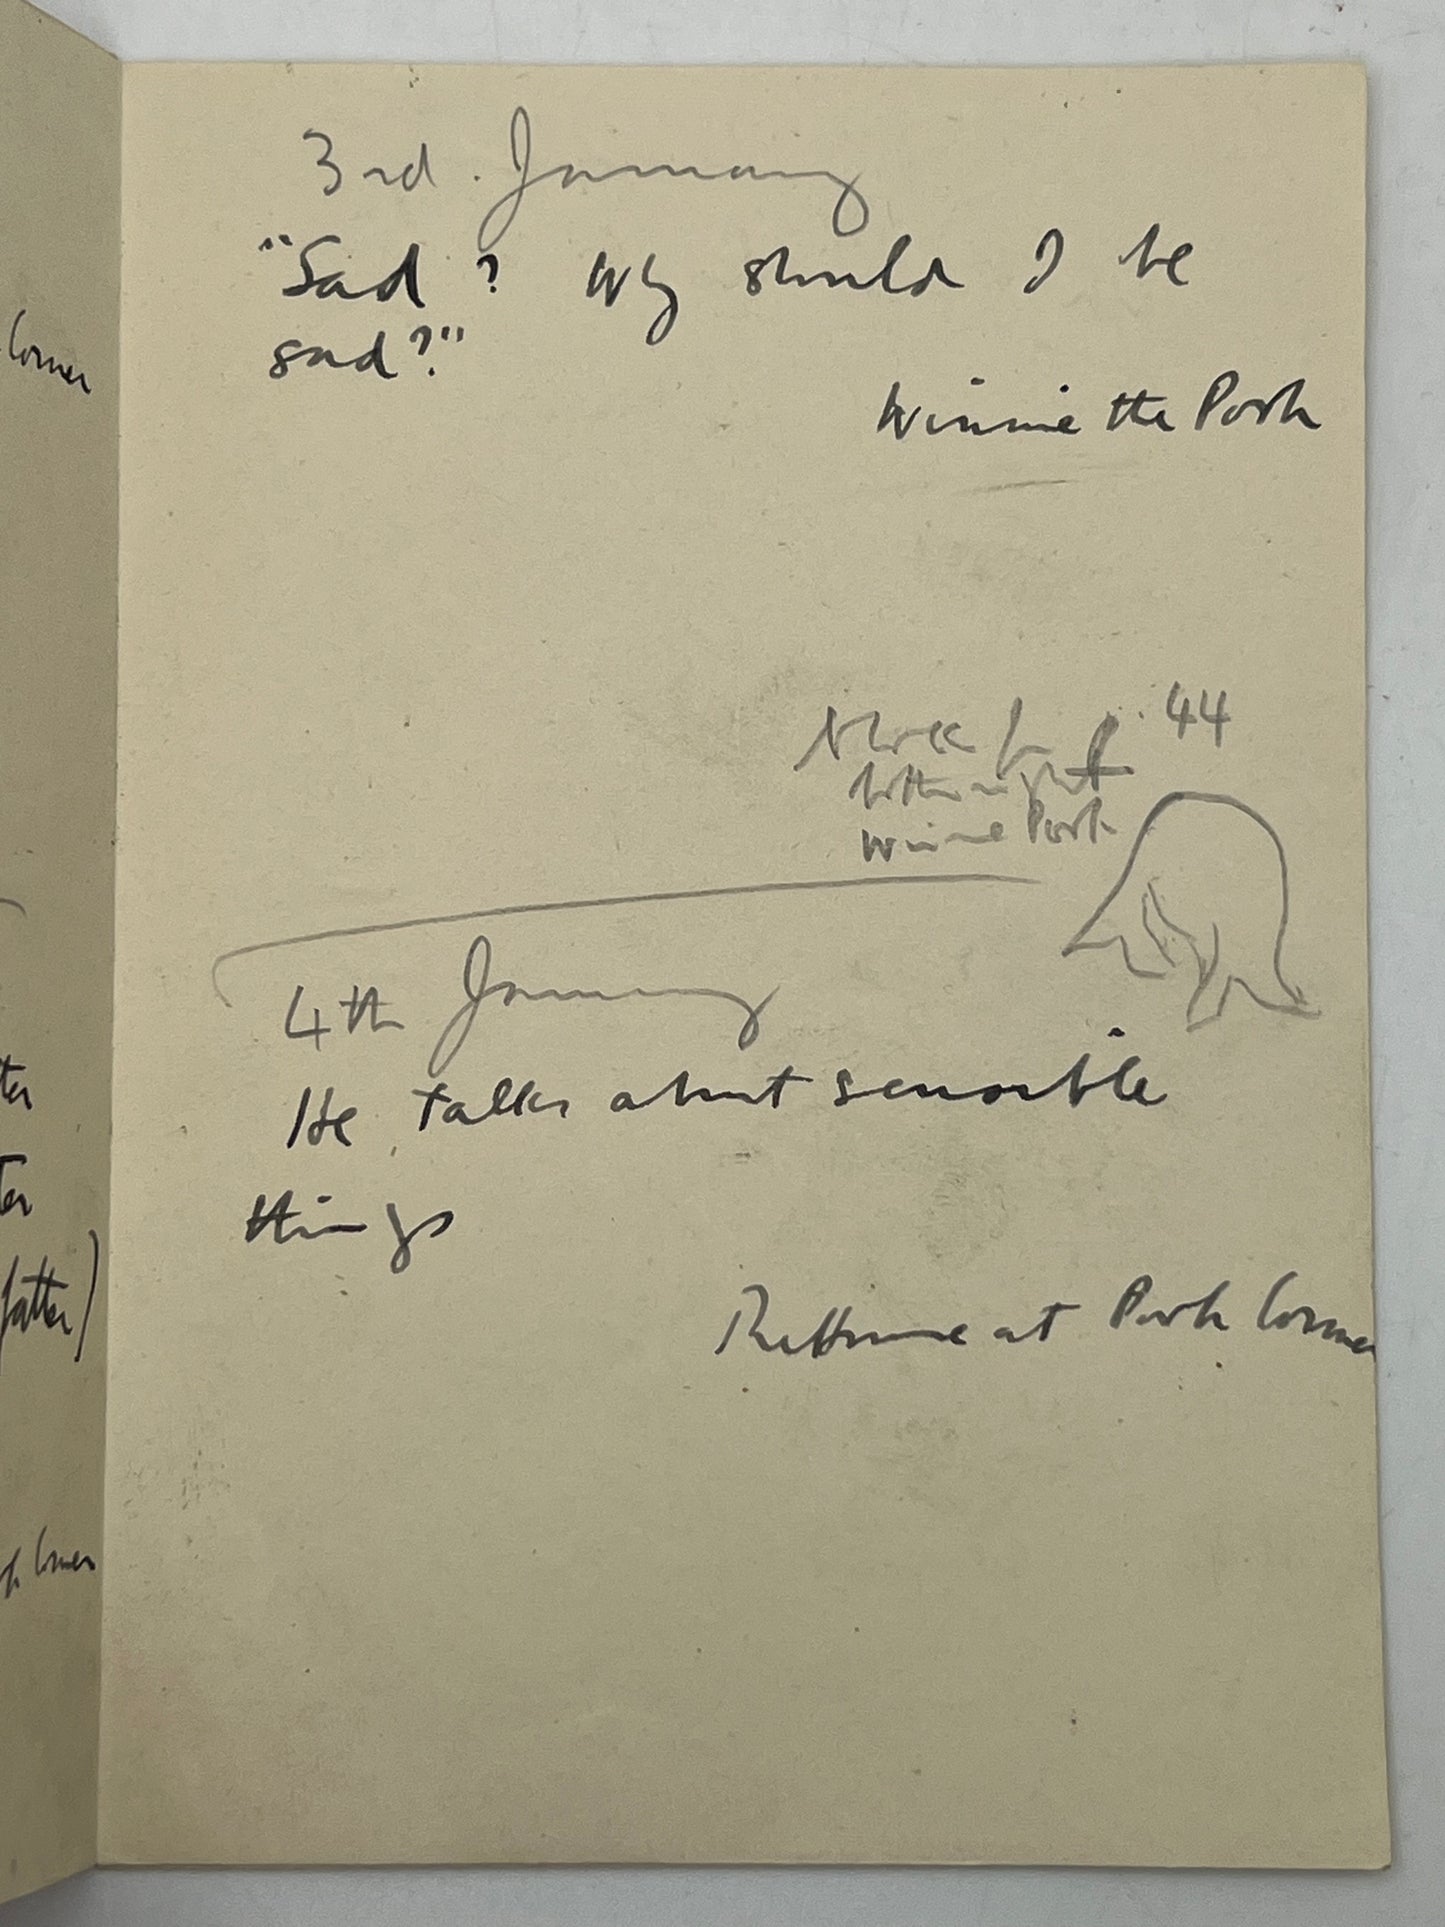 Corner
3rd. January
"Sad? Why should I be
sad?"
Winnie the Pooh
44
Winnie Pooh
4th January
He talks about sensible
things
at Pooh Corner
fatter)
Corner